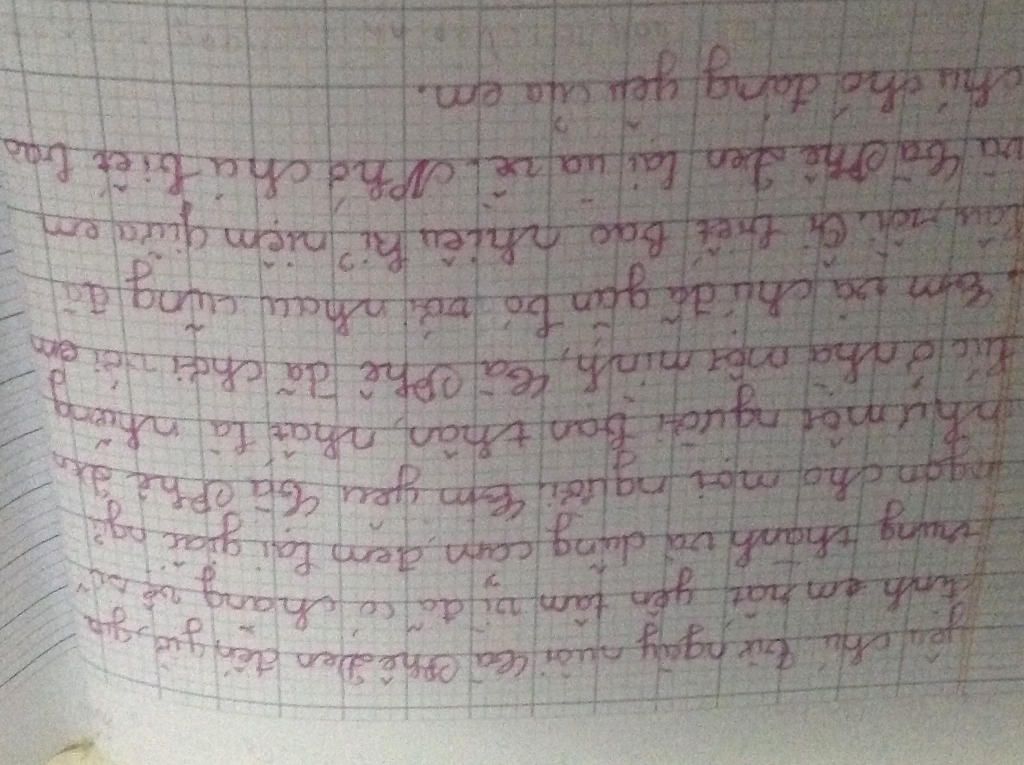 yêu chú. Từ ngày nuôi Cà Phê Đen đến giờ, gia
đình em rất yên tâm vì đã có chàng vệ sĩ
trung thành và dũng cảm đem lại giấc ngủ
ngon cho mọi người. Em yêu Cà Phê đen
như một người bạn thân, nhất là những
lúc ở nhà một mình, Cà Phê đã chơi với em
Em và chú đã gắn bó với nhau cũng đã
lâu rồi. Có biết bao nhiêu kỉ niệm giữa em
và Cà Phê Đen lại ùa về. Nhớ chả biết bao
chú chó đáng yêu của em.